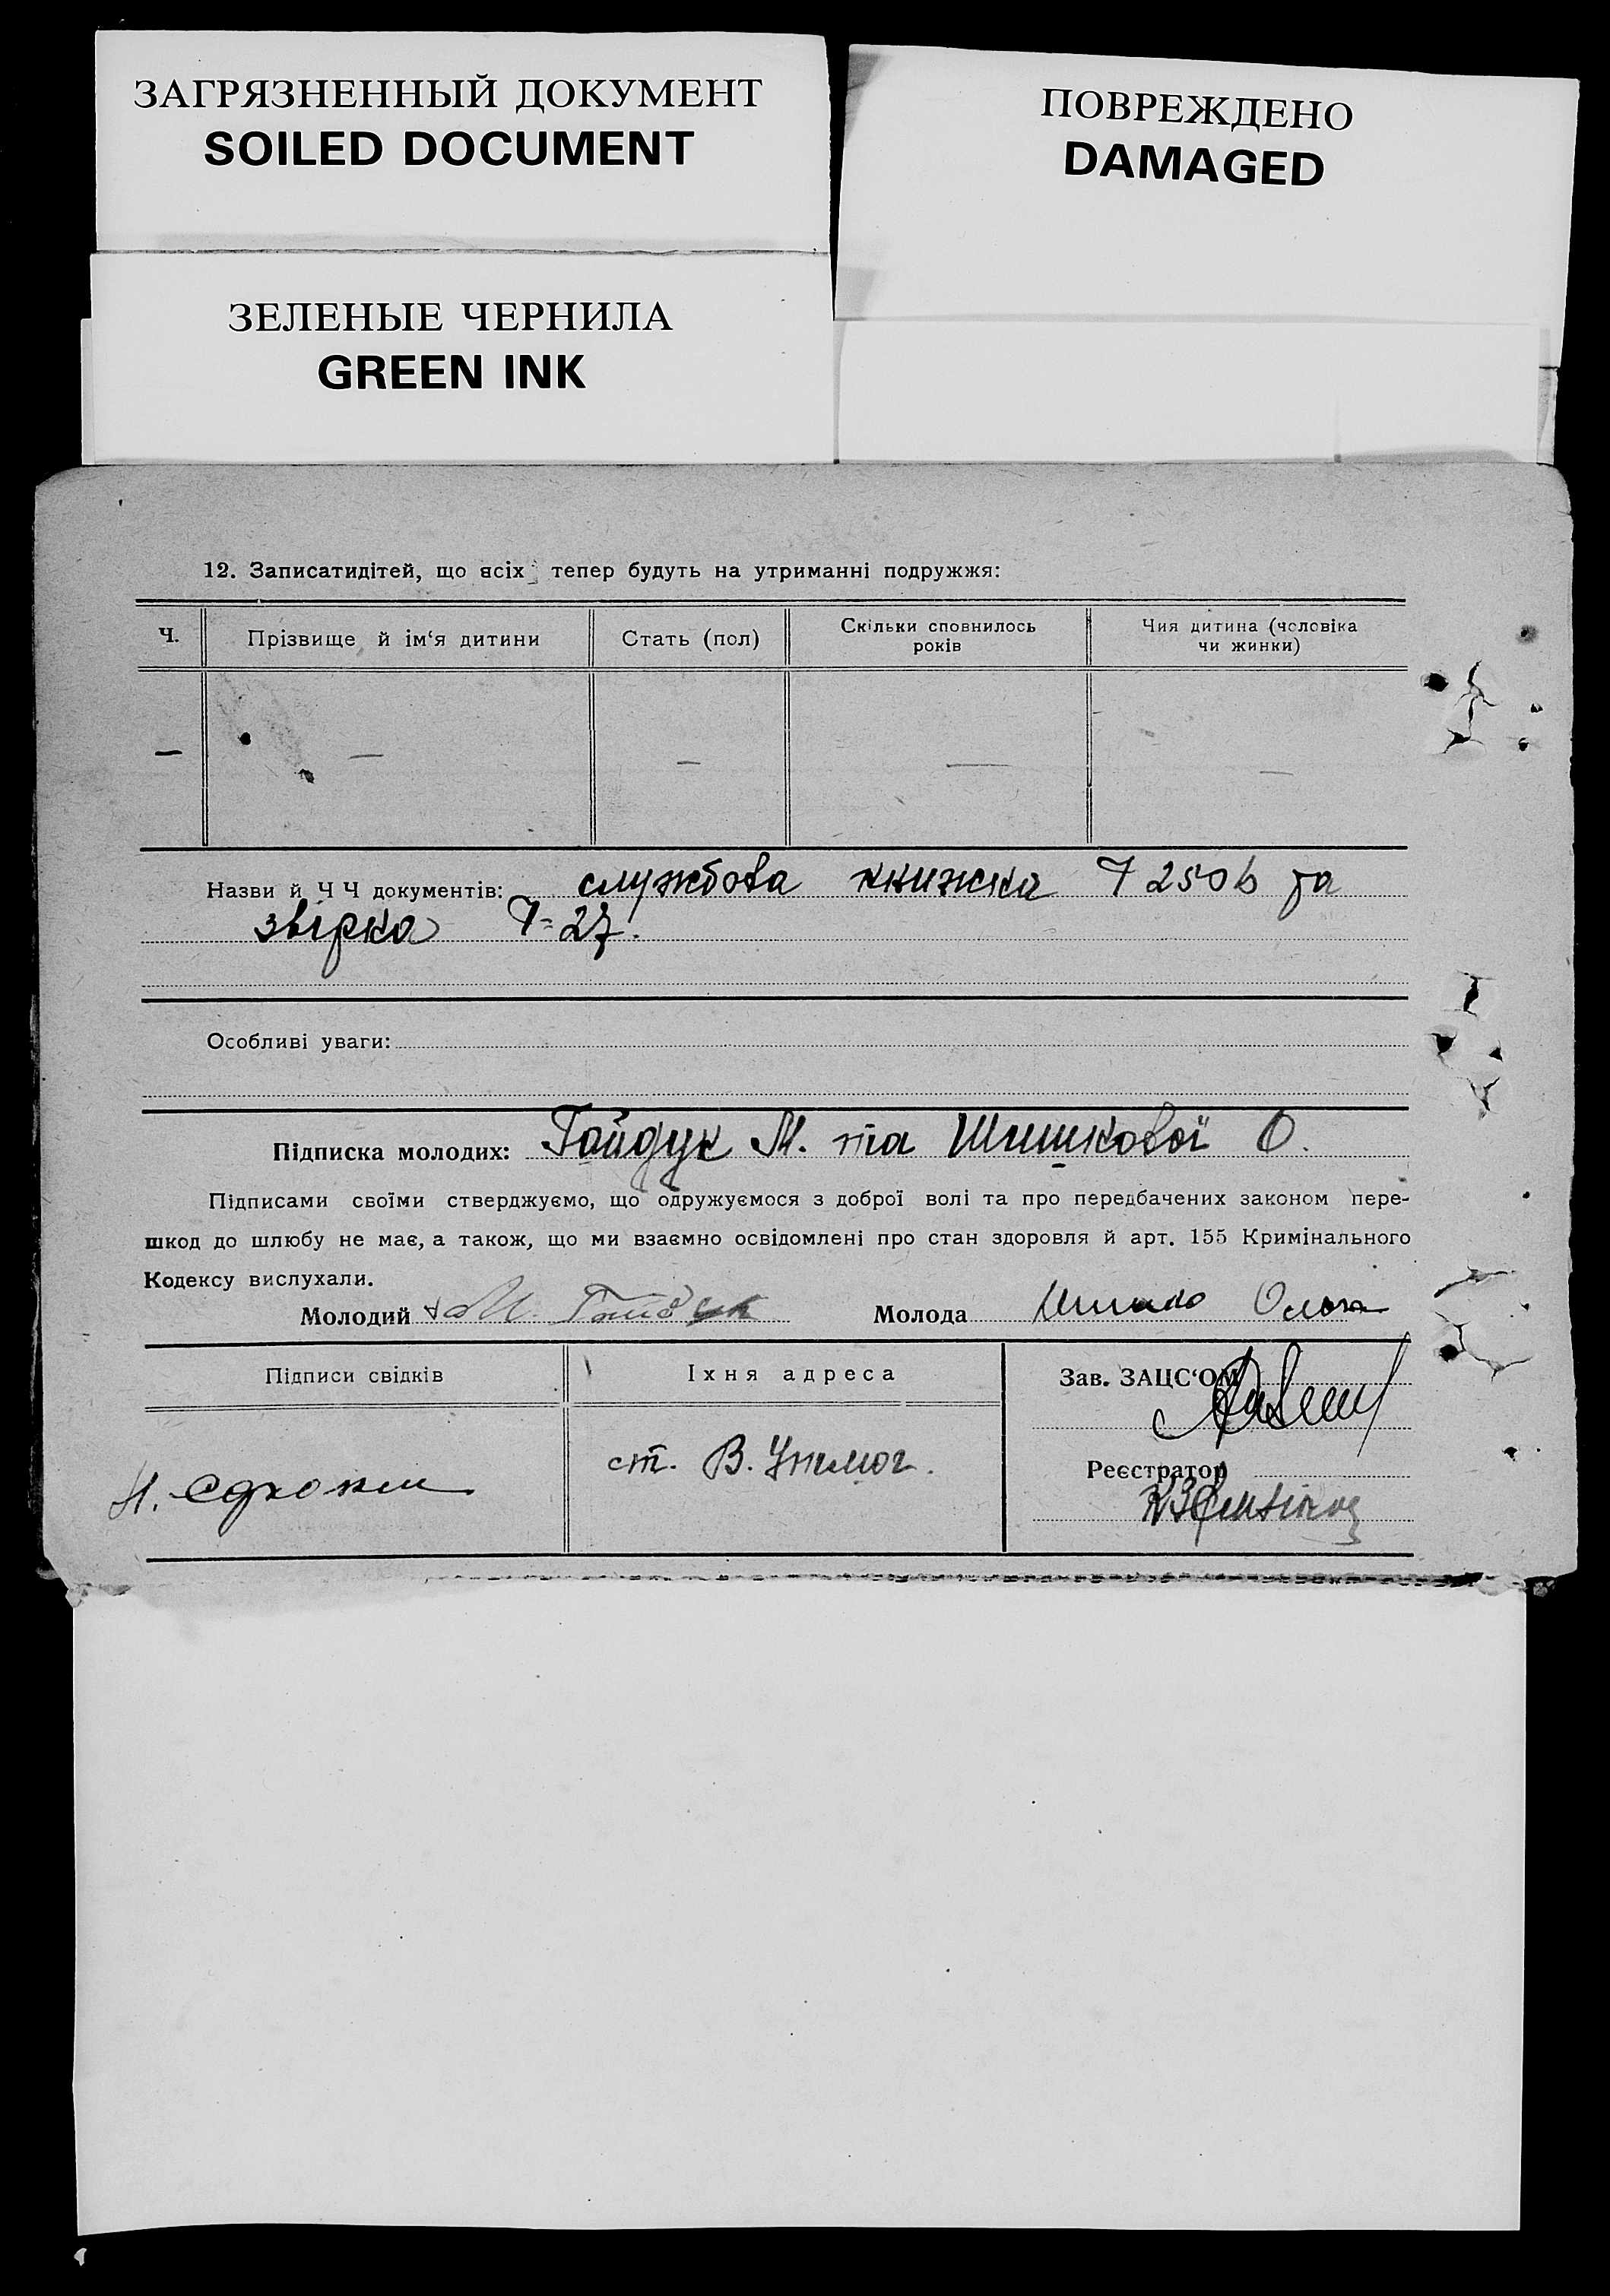 ЗАГРЯЗНЕННЫЙ ДОКУМЕНТ
SOILED DOCUMENT
ПОВРЕЖДЕНО
DAMAGED
ЗЕЛЕНЫЕ ЧЕРНИЛА
GREEN INK
12. Записатидітей, що всіх тепер будуть на утриманні подружжя:
Ч. Прізвище й ім‘я дитини Стать (пол) Скільки сповнилось років Чия дитина (чоловіка чи жинки)
— — — — —
Назви й Ч Ч документів: службова книжка 7 2506 та
звірка 7=27.
Особливі уваги:
Підписка молодих: Гайдук М. та Шишкової О.
Підписами своїми стверджуємо, що одружуємося з доброї волі та про передбачених законом пере-
шкод до шлюбу не має, а також, що ми взаємно освідомлені про стан здоровля й арт. 155 Кримінального
Кодексу вислухали.
Молодий М. Гайдук Молода Ольга
Підписи свідків Іхня адреса Зав. ЗАЦС‘ОМ
ст. В.
Реєстратор